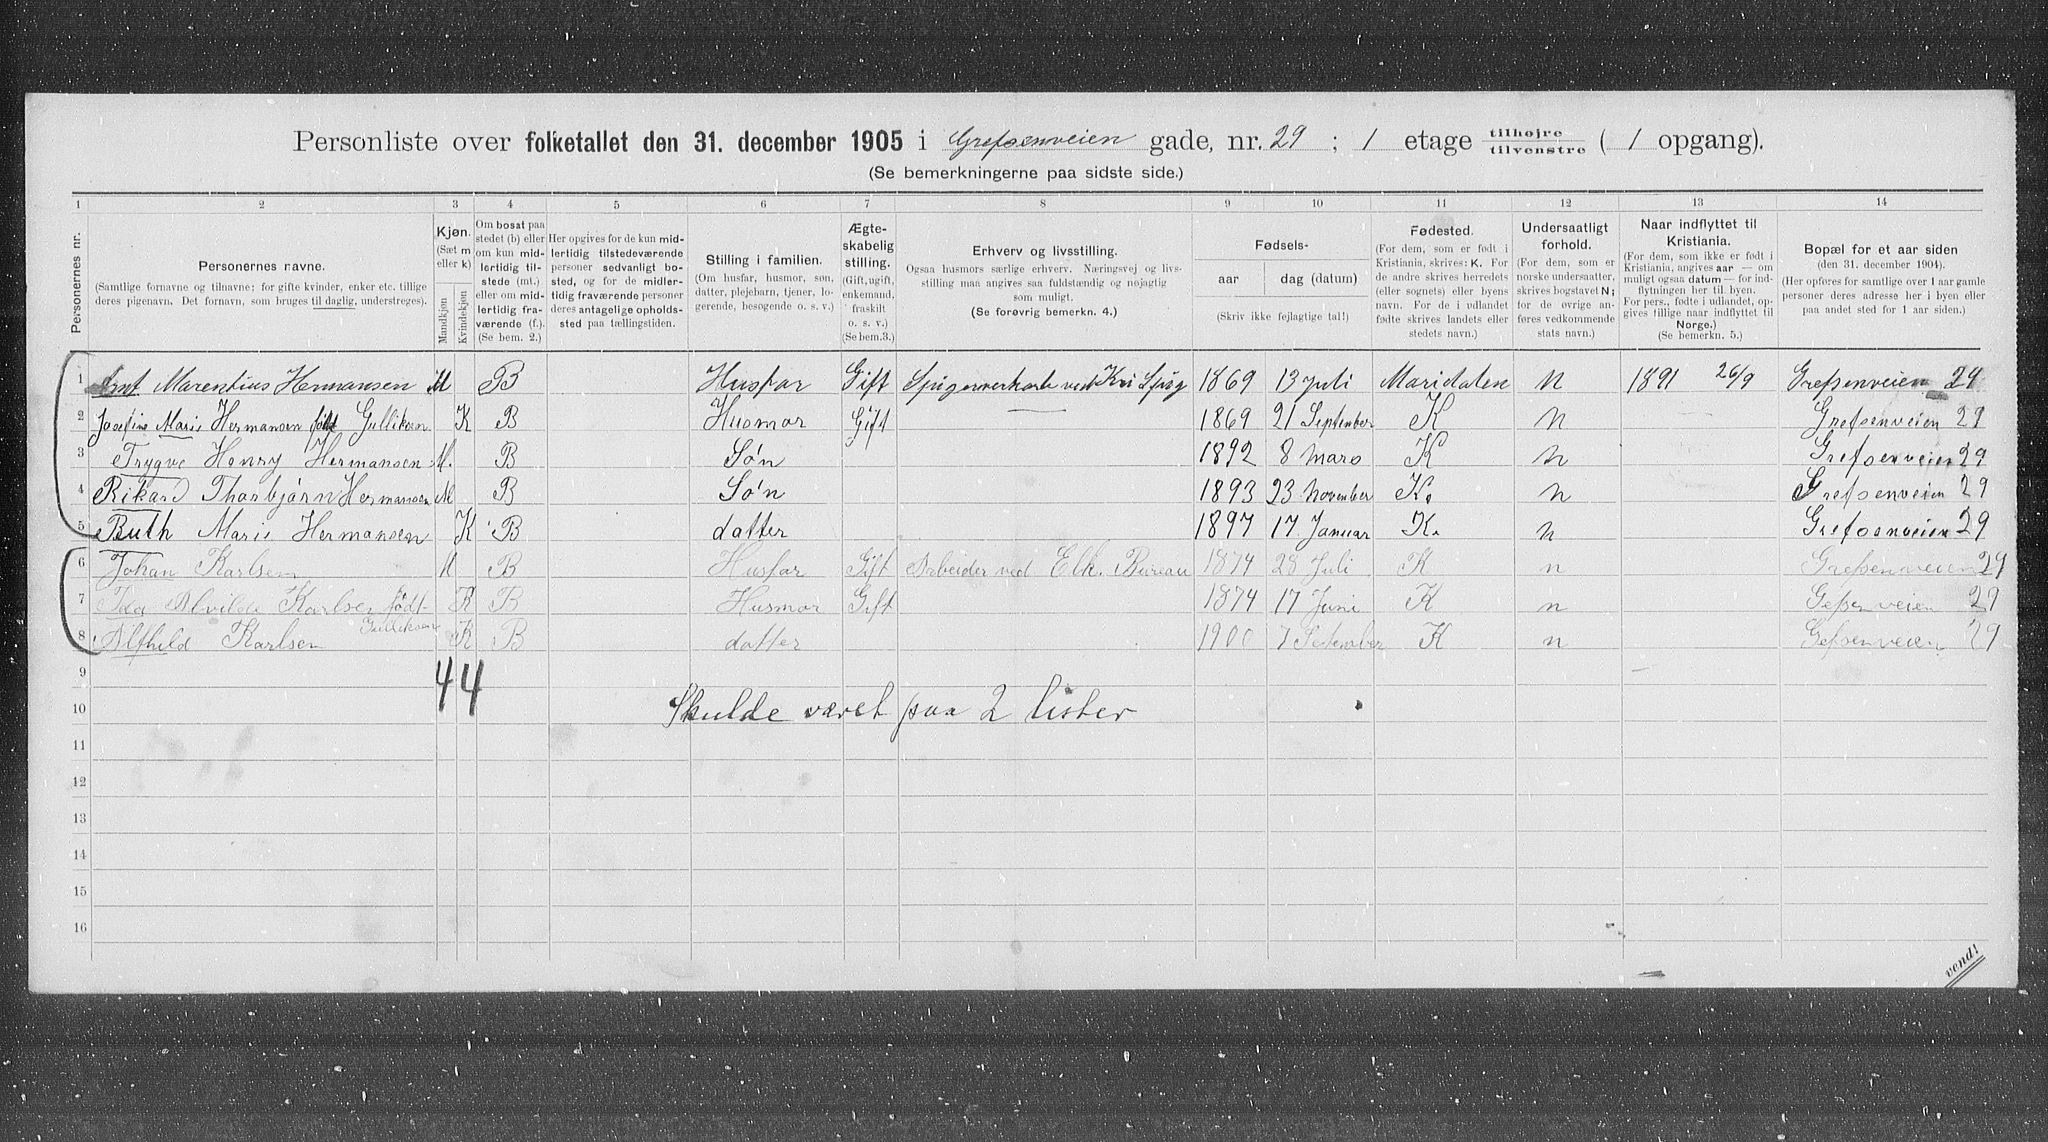 Personliste over folketallet den 31. december 1905 i Grefsenveien gade, nr. 29 ; 1 etage tilhøjre tilvenstre ( 1 opgang).
(Se bemerkningerne paa sidste side.)
1 2 3 4 5 6 7 8 9 10 11 12 13 14
Personernes nr.
Personernes navne.
(Samtlige fornavne og tilnavne; for gifte kvinder, enker etc. tillige
deres pigenavn. Det fornavn, som bruges til daglig, understreges).
Kjøn.
(Sæt m
eller k)
Mandkjøn
Kvindekjøn
Om bosat paa
stedet (b) eller
om kun mid-
lertidig til-
stede (mt.)
eller om mid-
lertidig fra-
værende (f.).
(Se bem. 2.)
Her opgives for de kun mid-
lertidig tilstedeværende
personer sedvanligt bo-
sted, og for de midler-
tidig fraværende personer
deres antagelige opholds-
sted paa tællingstiden.
Stilling i familien.
(Om husfar, husmor, søn,
datter, plejebarn, tjener, lo-
gerende, besøgende o. s. v.)
Ægte-
skabelig
stilling.
(Gift, ugift,
enkemand,
fraskilt
o. s. v.)
(Se bem.3.)
Erhverv og livsstilling.
Ogsaa husmors særlige erhverv. Næringsvej og livs-
stilling maa angives saa fuldstændig og nøjagtig
som muligt.
(Se forøvrig bemerkn. 4.)
Fødsels-
aar
dag (datum)
(Skriv ikke fejlagtige tal!)
Fødested.
(For dem, som er født i
Kristiania, skrives: K. For
de andre skrives herredets
(eller sognets) eller byens
navn. For de i udlandet
fødte skrives landets eller
stedets navn.)
Undersaatligt
forhold.
(For dem, som er
norske undersaatter,
skrives bogstavet N;
for de øvrige an-
føres vedkommende
stats navn.)
Naar indflyttet til
Kristiania.
(For dem, som ikke er født i
Kristiania, angives aar — om
muligt ogsaa datum — for ind-
flytningen her til byen.
For pers., fødte i udlandet, op-
gives tillige naar indflyttet til
Norge.)
(Se bemerkn. 5.)
Bopæl for et aar siden
(den 31. december 1904).
(Her opføres for samtlige over 1 aar gamle
personer deres adresse her i byen eller
paa andet sted for 1 aar siden.)
1 Marentius Hermansen M B Husfar Gift ved Kri Spig 1869 13 juli Maridalen N 1891 26/9 Grefsenveien 29
2 Josefine Marie Hermansen født Gulliksen K B Husmor Gift 1869 21 September K N Grefsenveien 29
3 Trygve Henry Hermansen M. B Søn 1892 8 mars K N Grefsenveien 29
4 Rikard Thorbjørn Hermansen M B Søn 1893 23 November K. N Grefsenveien 29
5 Ruth Marie Hermansen K B datter 1897 17 Januar K. N Grefsenveien 29
6 Johan Karlsen M B Husfar Gift Arbeider ved Elk. Bureau 1874 28 Juli K n Grefsenveien 29
7 Ida Alvilde Karlsen født K B Husmor Gift 1874 17 Juni K n Gefsenveien 29
Gulliksen
8 Alfhild Karlsen K B datter 1900 7 September K n Gefsenveien 29
9 4 4
10 Skulde været paa 2 lister
11
12
13
14
15
16
vend!